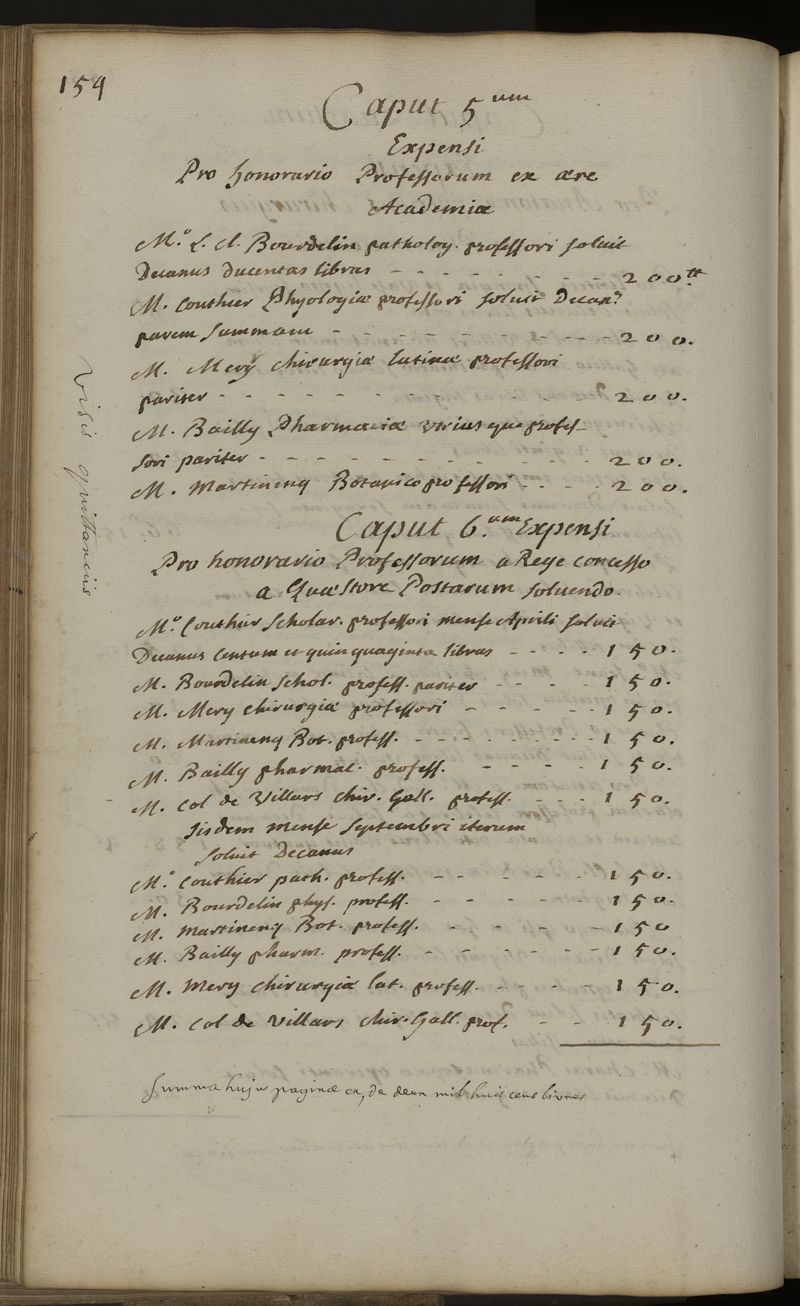 154
Caput 5.um
Expensi
Pro honorario Professorum ex ære
Academiæ
M.o L. Cl. Bourdelin patholog. professori soluit
Decanus ducentas libras - - - - - - - - - 200tt
M. Couthier Physologiæ professori soluit Decan9
parem summam - - - - - - - - - - 200.
M. Mery chirurgiæ latinæ professori
pariter - - - - - - - - - - - - 200.
M. Bailly Pharmaciæ utriusque profes-
sori pariter - - - - - - - - - - - 200.
M. Martinenq Botanico professori - - - - 200.
Caput 6.um Expensi
Pro honorario Professorum a Rege concesso
a Quæstore Postarum soluendo.
M.o Couthier Scholar. professori mense Aprili soluit
Decanus centum et quinquaginta libras - - - - 150.
M. Bourdelin Schol. profess. pariter - - - - 150.
M. Mery chirurgiæ professori - - - - - 150.
M. Martinenq Bot. profess. - - - - - - - - - 150.
M. Bailly pharmac. profess. - - - - 150.
M. Col de Villars chir. Gall. profess. - - - 150.
Iisdem mense Septembri iterum
soluit Decanus
M.o Couthier path. profess. - - - - - - 150.
M. Bourdelin phys. profess. - - - - - 150.
M. Martinenq Bot. profess. - - - - - 150
M. Bailly pharm. profess. - - - - - - 150.
M. Mery chirurgiæ lat. profess. - - - - 150.
M. Col de Villars chir. Gall. prof. - - 150.
Summa hujus paginæ est de deux mil huit cens livres
visis quittanciis